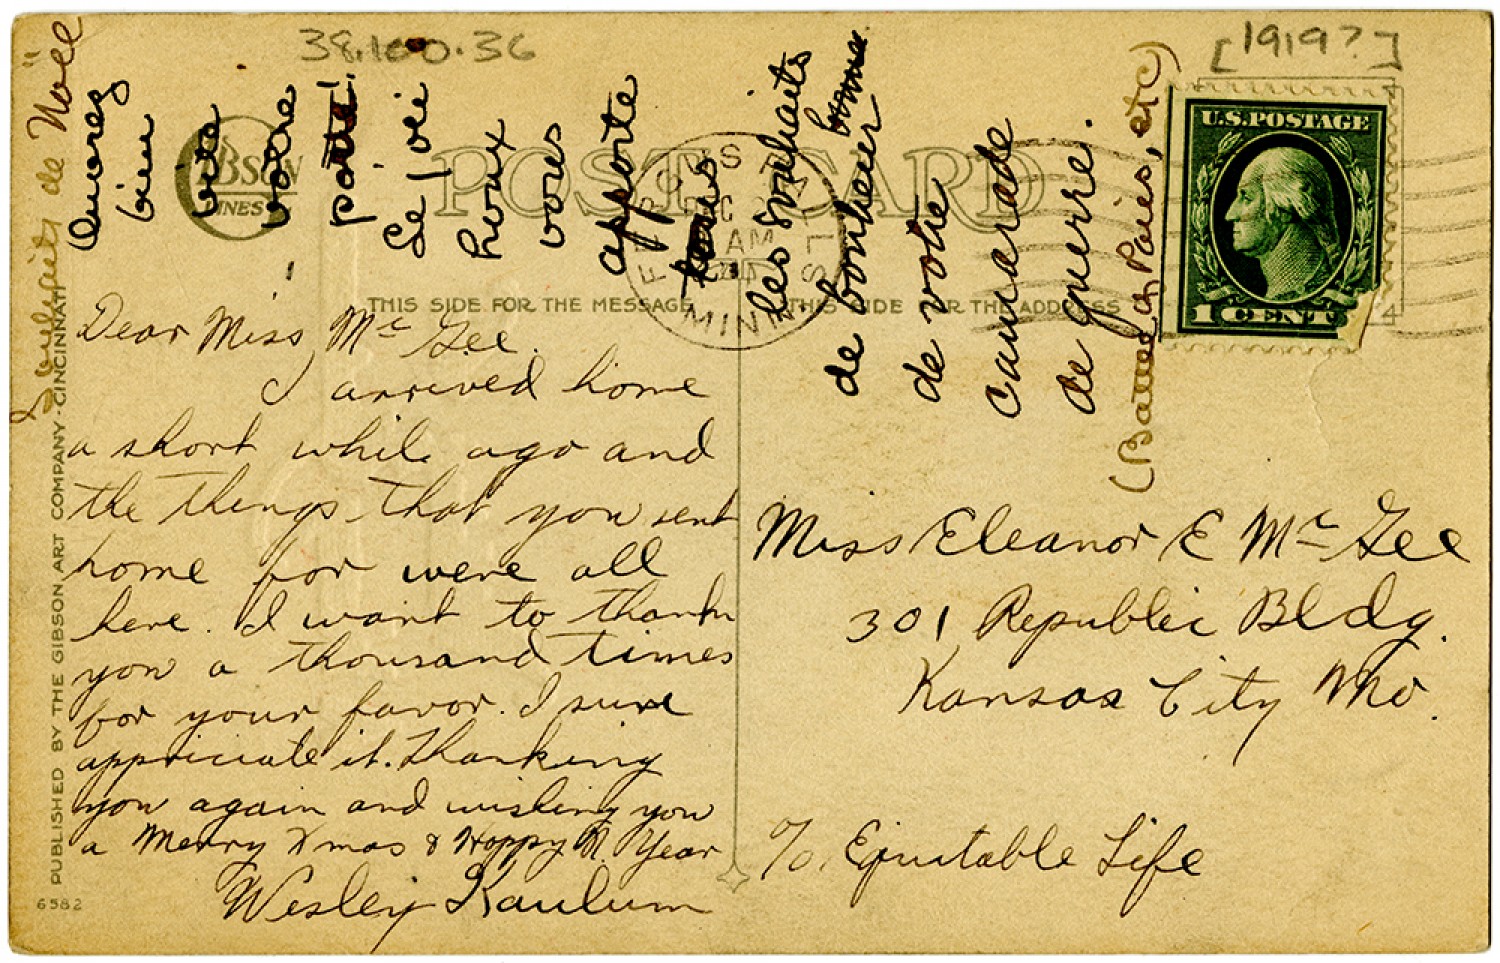 38.100.36
[1919?]
Souhaits de Noël
Ouvrez
bien
votre
porte!
Ce joli
houx
vous
apporte
les souhaits
de bonheur
de votre
camarade
de guerre.
U.S. POSTAGE
1 CENT 1
GIBSON
LINES
POST CARD
FERGUS FALLS
DEC
AM
MINN.
THIS SIDE FOR THE MESSAGE
THIS SIDE FOR THE ADDRESS
Dear Miss Mc Gee.
I arrived home
a short while ago and
the things that you sent
home for were all
here. I want to thank
you a thousand times
for your favor. I sure
appriciate it. Thanking
you again and wishing you
a Merry Xmas & Happy N. Year
Wesley
Miss Eleanor E Mc Gee
301 Republic Bldg.
Kansas City Mo.
c/o. Equitable Life
PUBLISHED BY THE GIBSON ART COMPANY-CINCINNATI
6582